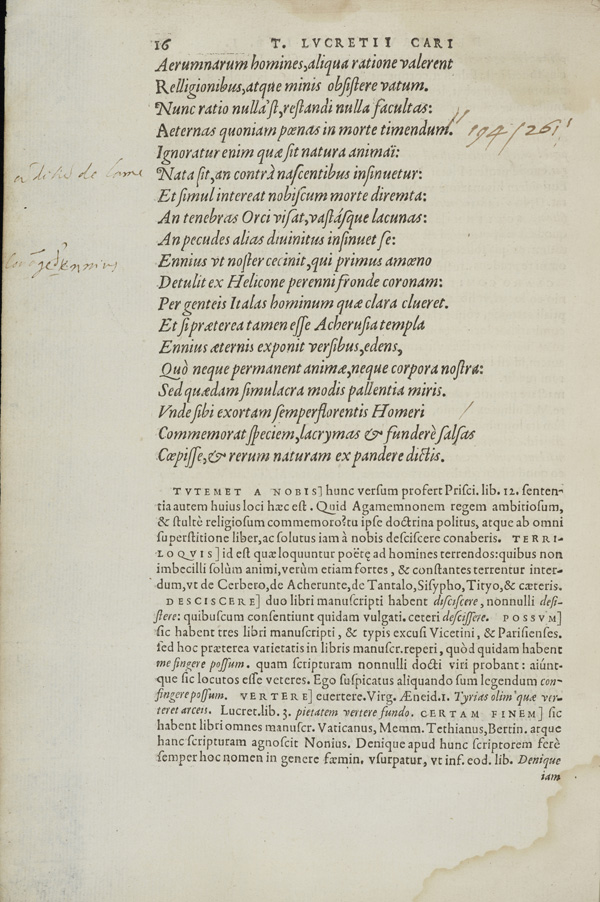 16 T. LVCRETII CARI
Aerumnarum homines, aliqua ratione valerent
Relligionibus, atque minis obsistere vatum.
Nunc ratio nulla'st, restandi nulla facultas:
Aeternas quoniam pœnas in morte timendum. 194/261
Ignoratur enim quæ sit natura animaï:
Nata sit, an contrà nascentibus insinuetur:
Et simul intereat nobiscum morte diremta:
An tenebras Orci visat, vastásque lacunas:
An pecudes alias diuinitus insinuet se:
Ennius vt noster cecinit, qui primus amœno
Ennius
Detulit ex Helicone perenni fronde coronam:
Per genteis Italas hominum quæ clara clueret.
Et si præterea tamen esse Acherusia templa
Ennius æternis exponit versibus, edens,
Quò neque permanent animæ, neque corpora nostra:
Sed quædam simulacra modis pallentia miris.
Vnde sibi exortam semperflorentis Homeri
Commemorat speciem, lacrymas & funderè salsas
Cœpisse, & rerum naturam expandere dictis.
TVTEMET A NOBIS] hunc versum profert Prisci. lib. 12. senten-
tia autem huius loci hæc est. Quid Agamemnonem regem ambitiosum,
& stultè religiosum commemoro? tu ipse doctrina politus, atque ab omni
superstitione liber, ac solutus iam à nobis desciscere conaberis. TERRI-
LOQVIS] id est quæ loquuntur poëtę ad homines terrendos: quibus non
imbecilli solùm animi, verùm etiam fortes, & constantes terrentur inter-
dum, vt de Cerbero, de Acherunte, de Tantalo, Sisypho, Tityo, & cæteris.
DESCISCERE] duo libri manuscripti habent disciscere, nonnulli desi-
stere: quibuscum consentiunt quidam vulgati. ceteri descissere. POSSVM]
sic habent tres libri manuscripti, & typis excusi Vicetini, & Parisienses.
sed hoc præterea varietatis in libris manuscr. reperi, quòd quidam habent
me fingere possum. quam scripturam nonnulli docti viri probant: aiúnt-
que sic locutos esse veteres. Ego suspicatus aliquando sum legendum con-
fingere possum. VERTERE] euertere. Virg. Æneid. 1. Tyrias olim quæ ver-
teret arceis. Lucret. lib. 3. pietatem vertere fundo. CERTAM FINEM] sic
habent libri omnes manuscr. Vaticanus, Memm. Tethianus, Bertin. atque
hanc scripturam agnoscit Nonius. Denique apud hunc scriptorem ferè
semper hoc nomen in genere fœmin. vsurpatur, vt inf. eod. lib. Denique
iam